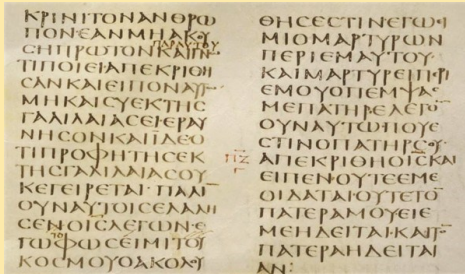 ΚΡΙΝΙΤΟΝΑΝΘΡΩ
ΠΟΝΕΑΝΜΗΑΚΟΥ
ΠΑΡΑΥΤΟΥ
ΣΗΠΡΩΤΟΝΚΑΙΓΝ
ΤΙΠΟΙΕΙΑΠΕΚΡΙΘΗ
ΣΑΝΚΑΙΕΙΠΟΝΑΥΤ
ΜΗΚΑΙΣΥΕΚΤΗΣ
ΓΑΛΙΛΑΙΑΣΕΙΕΡΑΥ
ΝΗΣΟΝΚΑΙΙΔΕΟ
ΤΙΠΡΟΦΗΤΗΣΕΚ
ΤΗΣΓΑΛΙΛΑΙΑΣΟΥ
ΚΕΓΕΙΡΕΤΑΙ· ΠΑΛΙ
ΟΥΝΑΥΤΟΙΣΕΛΑΛΗ
ΣΕΝΟΙΣΛΕΓΩΝ·Ε
ΤΟ
ΓΩΦΩΣΕΙΜΙΤΟΥ
ΚΟΣΜΟΥΟΑΚΟΛΟΥ
ΘΗΣΕΣΤΙΝΕΓΩΙ
ΜΙΟΜΑΡΤΥΡΩΝ
ΠΕΡΙΕΜΑΥΤΟΥ·
ΚΑΙΜΑΡΤΥΡΕΙΠΕΡΙ
ΕΜΟΥΟΠΕΜΨΑΣ
ΜΕΠΑΤΗΡΕΛΕΓΟ
ΟΥΝΑΥΤΩΠΟΥΕ
ΣΤΙΝΟΠΑΤΗΡΣΟΥ
ΠΖ
Γ
ΑΠΕΚΡΙΘΗΟΙΣΚΑΙ
ΕΙΠΕΝΟΥΤΕΕΜΕ
ΟΙΔΑΤΑΙΟΥΤΕΤΟ
ΠΑΤΕΡΑΜΟΥΕΙΕ
ΜΕΗΔΕΙΤΑΙ·ΚΑΙΤ
ΠΑΤΕΡΑΗΔΕΙΤΑΙ
ΑΝ: